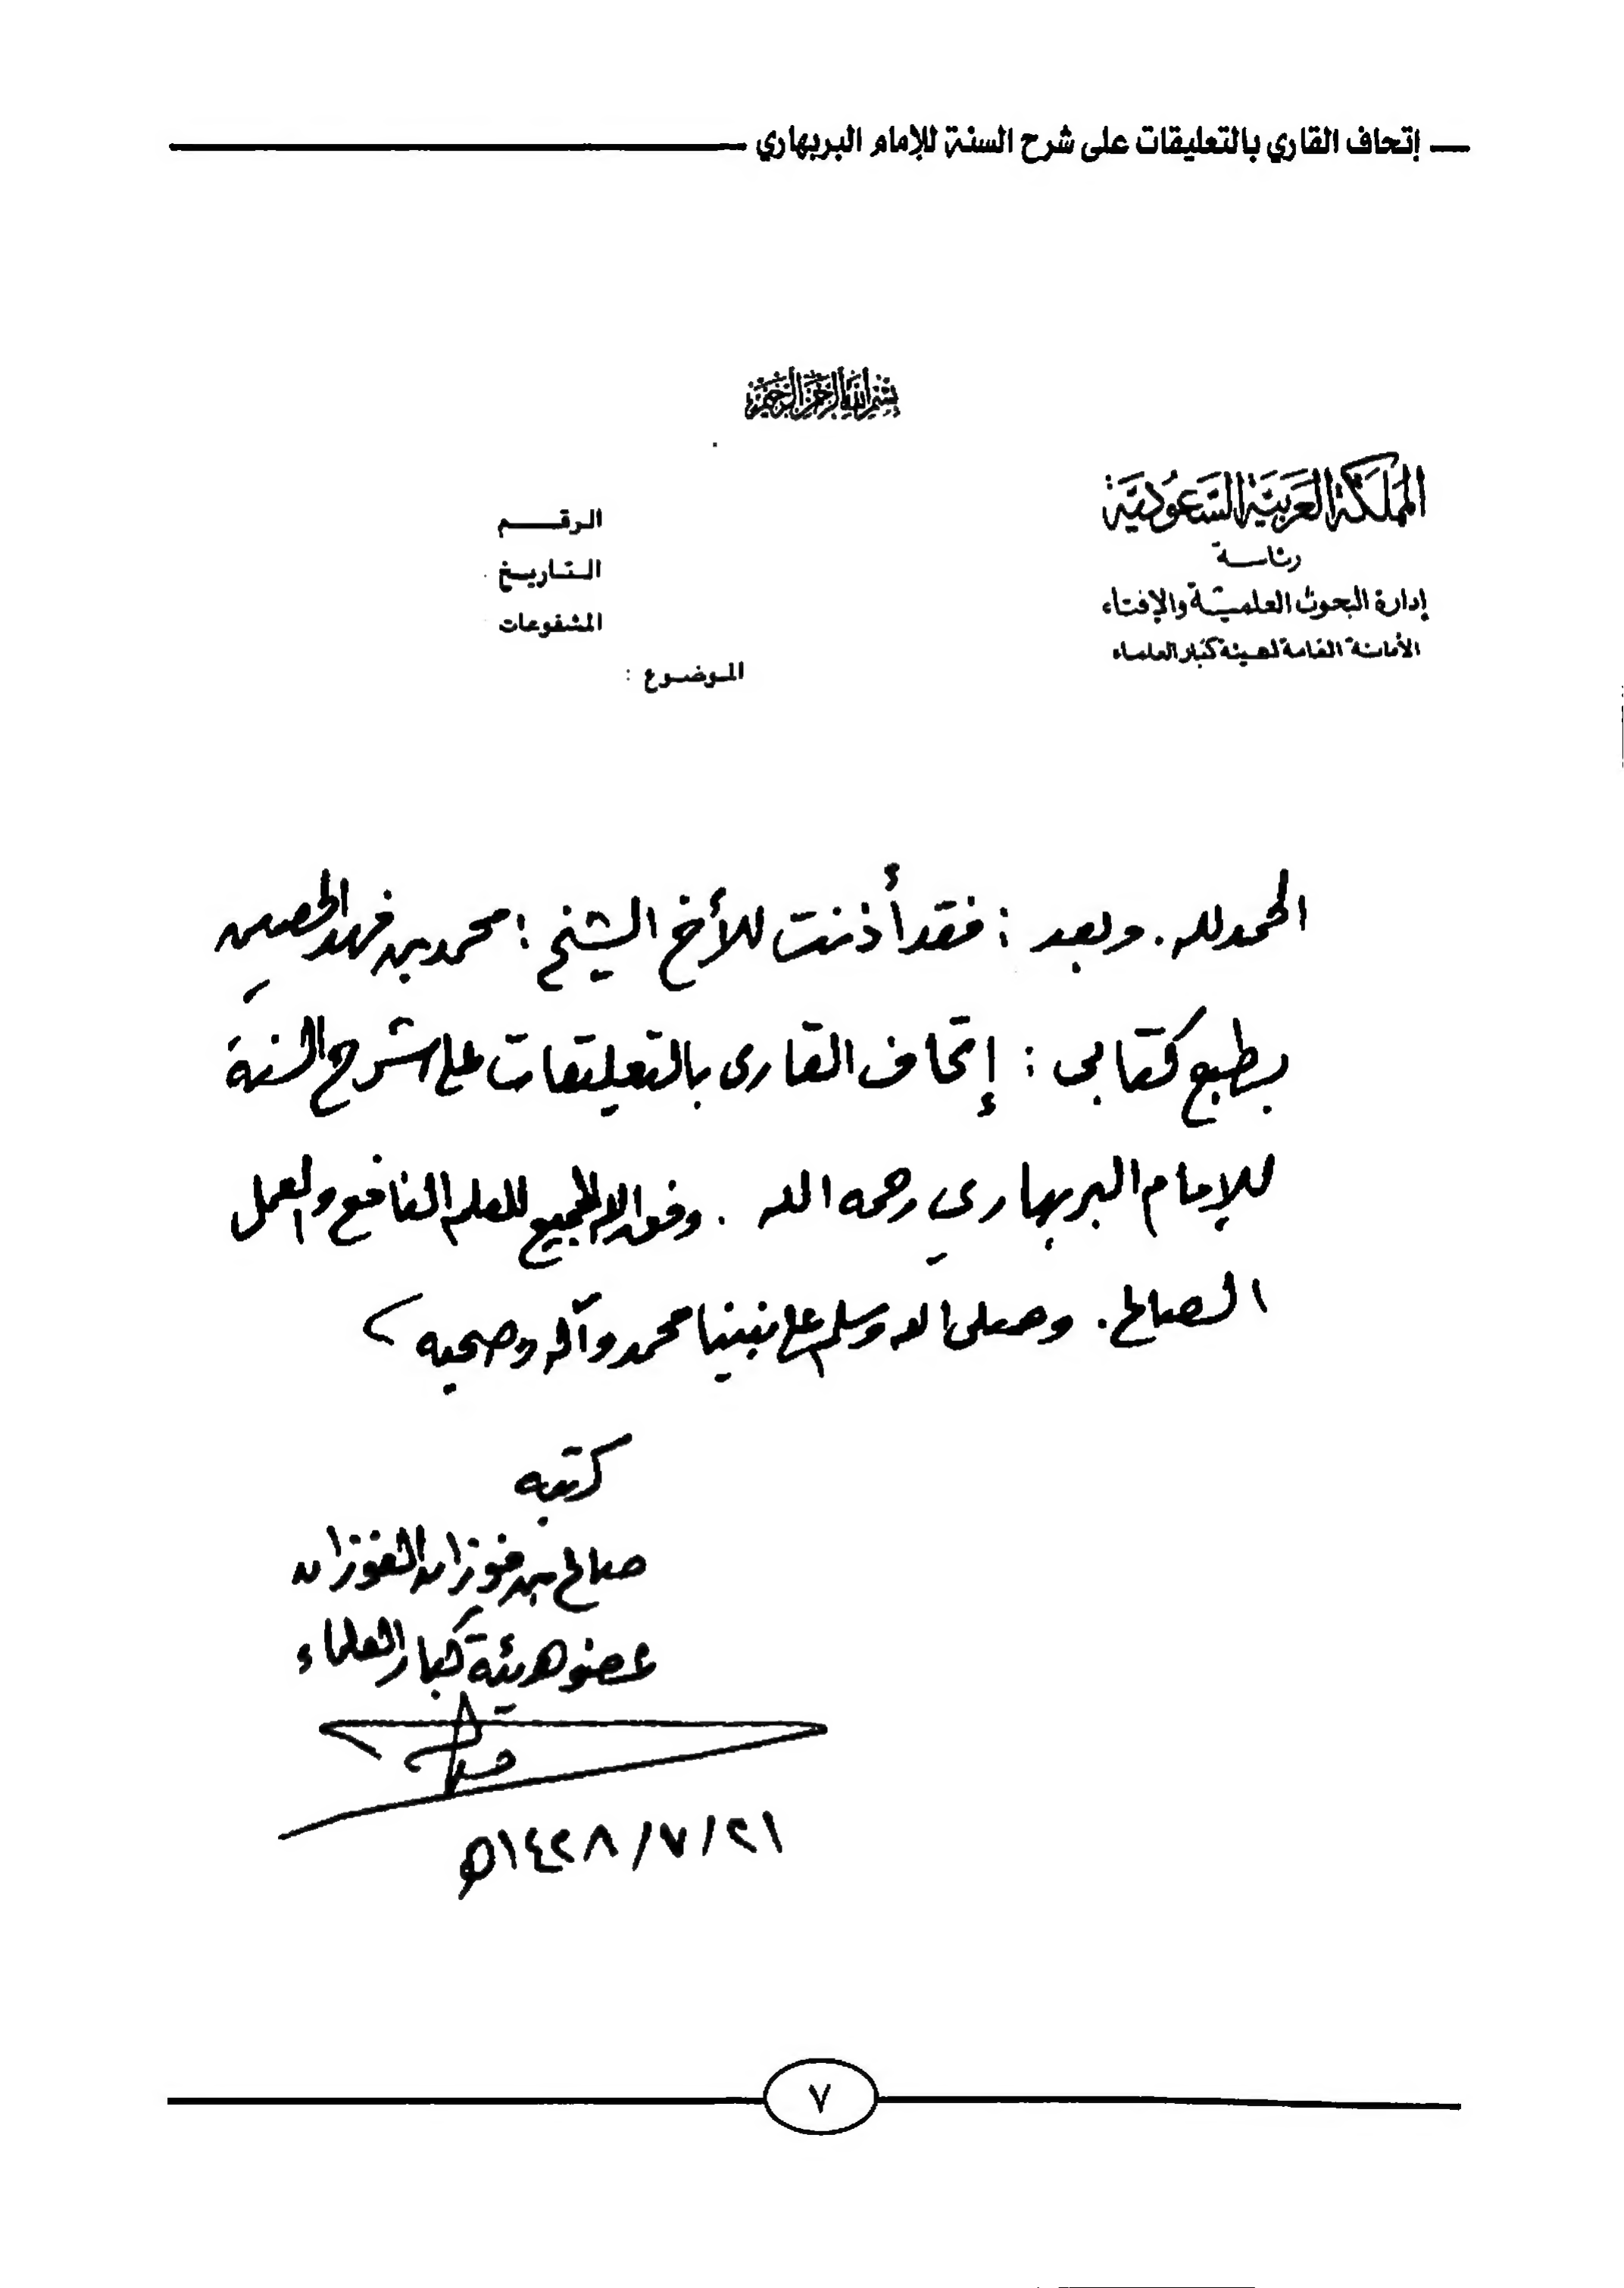 إتحاف القاري بالتعليقات على شرح السنة للإمام البربهاري
بسم الله الرحمن الرحيم
المملكة العربية السعودية
رئاسة
إدارة البحوث العلمية والإفتاء
الأمانة العامة لهيئة كبار العلماء
الرقم
التاريخ
المشفوعات
الموضوع :
الحمد لله . وبعد : فقد أذنت للأخ الشيخ : محمد بن فهد الحصين
بطبع كتابي : إتحاف القارى بالتعليقات على شرح السنة
للإمام البربهاري رحمه الله . وفق الله الجميع للعلم النافع والعمل
الصالح . وصلى الله وسلم على نبينا محمد وآله وصحبه
كتبه
صالح بن فوزان الفوزان
عضو هيئة كبار العلماء
٢١/٧/١٤٢٨ه
٧